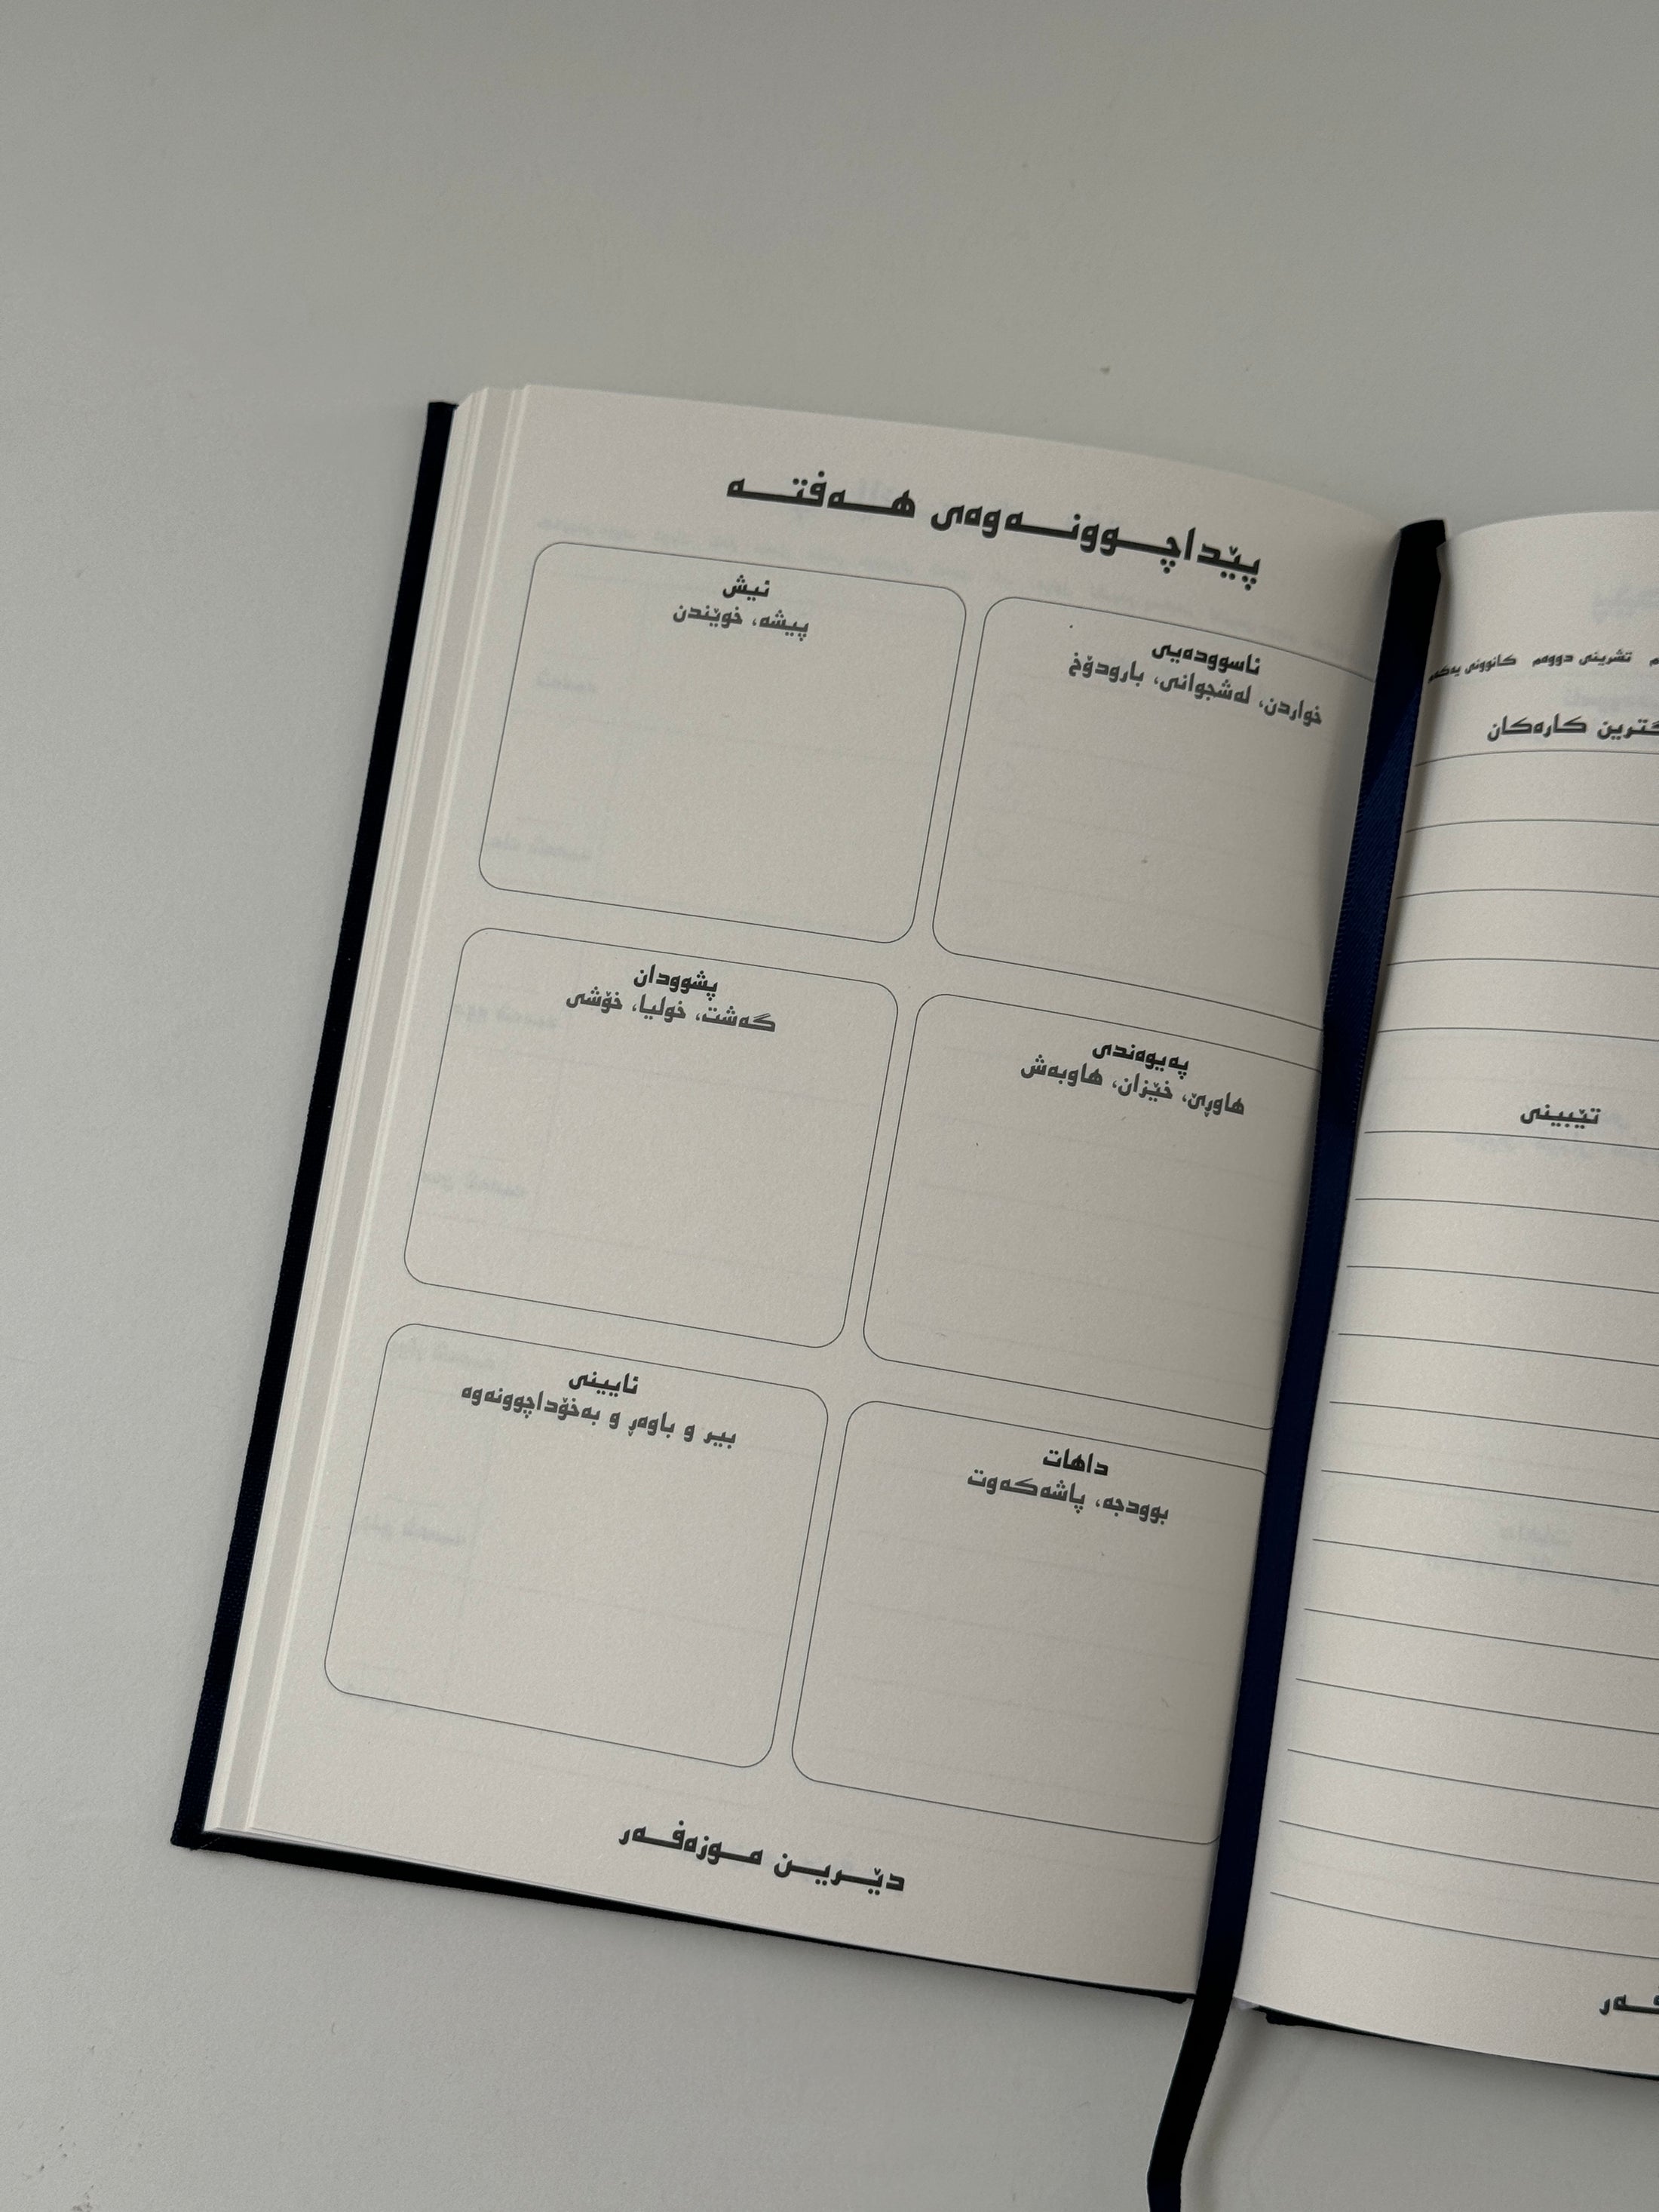 پێداچوونەوەی هەفتە
ئاسوودەیی
خواردن، لەشجوانی، بارودۆخ
ئیش
پیشە، خوێندن
پەیوەندی
هاوڕێ، خێزان، هاوبەش
پشوودان
گەشت، خولیا، خۆشی
داهات
بوودجە، پاشەکەوت
ئایینی
بیر و باوەڕ و بەخۆداچوونەوە
دێرین موزەفەر
تشرینی دووەم کانوونی یەکەم
کارەکان
تێبینی